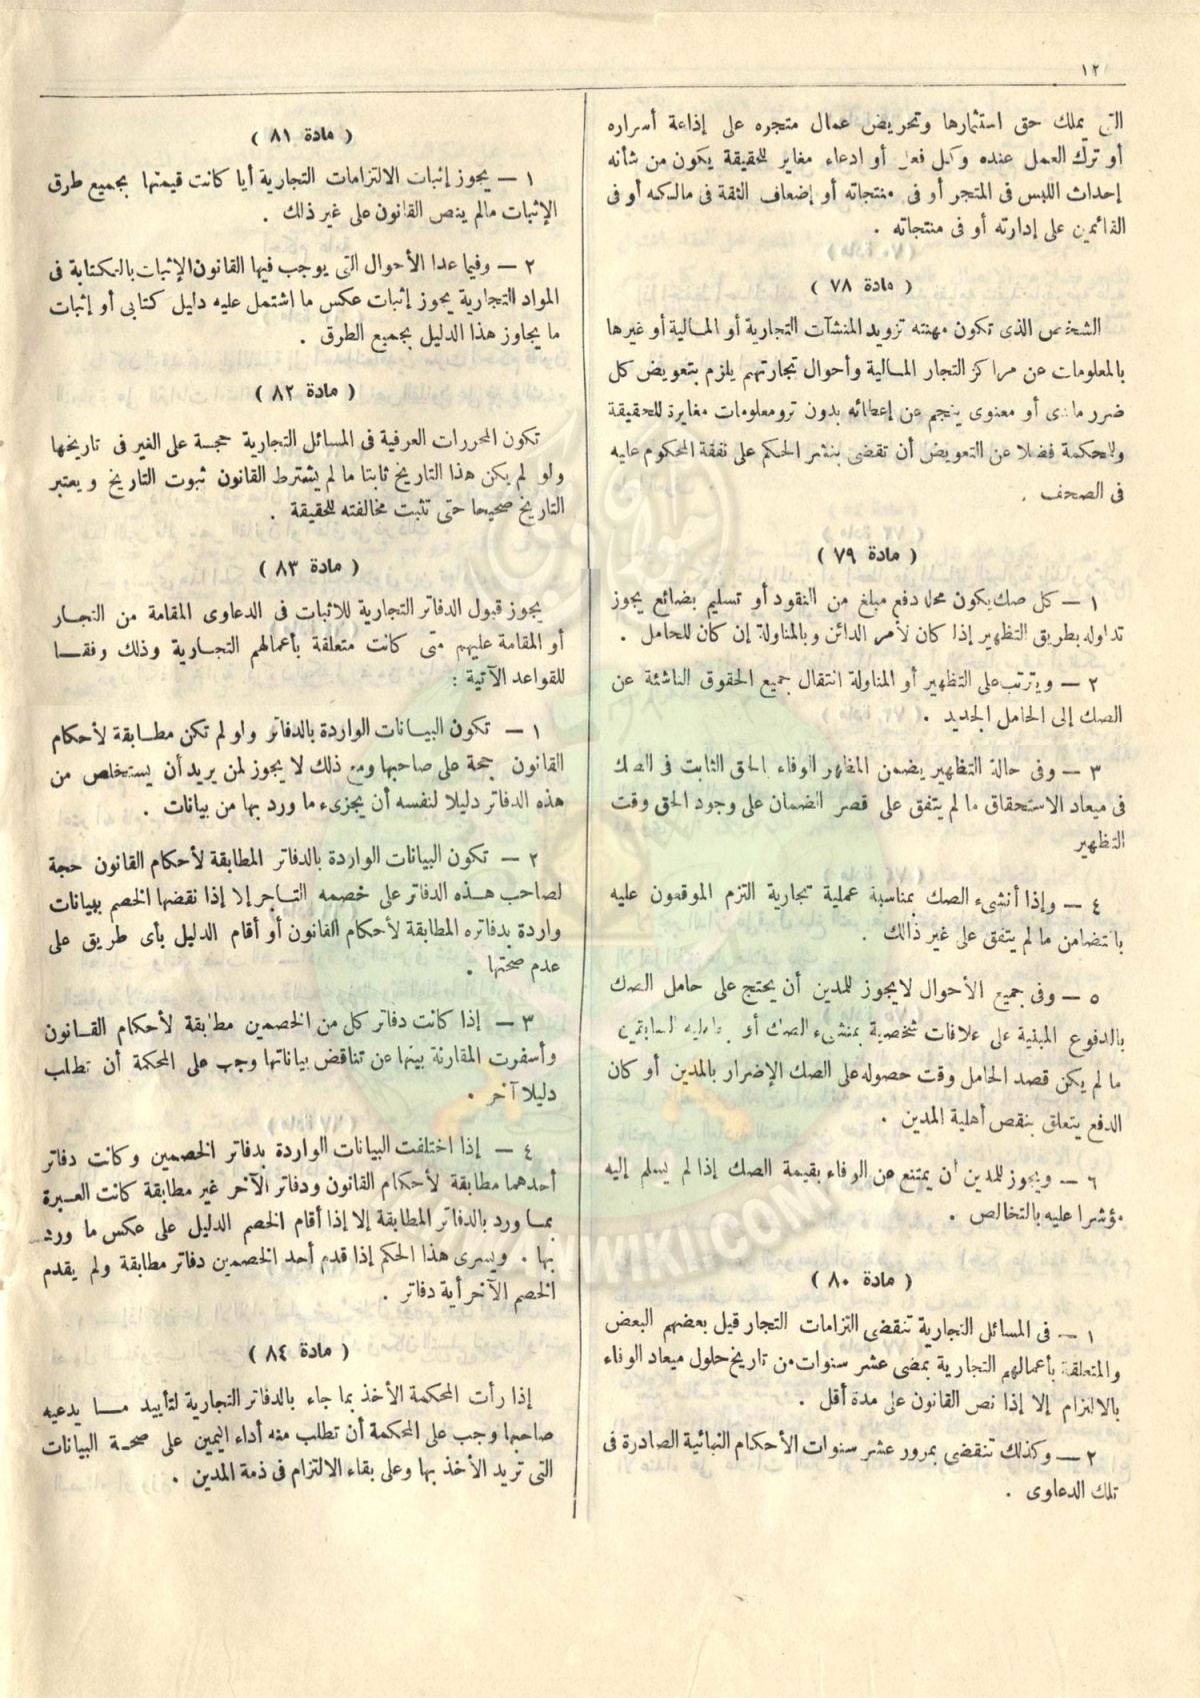 ١٢
التي يملك حق استثمارها وتحريض عمال متجره على إذاعة أسراره
أو ترك العمل عنده وكل فعل أو ادعاء مغاير للحقيقة يكون من شأنه
إحداث اللبس فى المتجر أو فى منتجاته أو إضعاف الثقة فى مالكه أو فى
القائمين على إدارته أو فى منتجاته .
( مادة ٧٨ )
الشخص الذى تكون مهنته تزويد المنشآت التجارية أو المالية أو غيرها
بالمعلومات عن مراكز التجار المالية وأحوال تجارتهم يلزم بتعويض كل
ضرر مادى أو معنوى ينجم عن إعطائه بدون ترو معلومات مغايرة للحقيقة
وللمحكمة فضلا عن التعويض أن تقضى بنشر الحكم على نفقة المحكوم عليه
فى الصحف .
( مادة ٧٩ )
١ — كل صك يكون محله دفع مبلغ من النقود أو تسليم بضائع يجوز
تداوله بطريق التظهير إذا كان لأمر الدائن وبالمناولة إن كان للحامل .
٢ — ويترتب على التظهير أو المناولة انتقال جميع الحقوق الناشئة عن
الصك إلى الحامل الجديد .
٣ — وفى حالة التظهير يضمن المظهر الوفاء بالحق الثابت فى الصك
فى ميعاد الاستحقاق ما لم يتفق على قصر الضمان على وجود الحق وقت
التظهير
٤ — وإذا أنشىء الصك بمناسبة عملية تجارية التزم الموقعون عليه
بالتضامن ما لم يتفق على غير ذالك .
٥ — وفى جميع الأحوال لايجوز للمدين أن يحتج على حامل الصك
بالدفوع المبنية على علاقات شخصية بمنشىء الصك أو بحامليه السابقين
ما لم يكن قصد الحامل وقت حصوله على الصك الإضرار بالمدين أو كان
الدفع يتعلق بنقص أهلية المدين .
٦ — ويجوز للمدين أن يمتنع عن الوفاء بقيمة الصك إذا لم يسلم إليه
مؤشرا عليه بالتخالص .
( مادة ٨٠ )
١ — فى المسائل التجارية تنقضى التزامات التجار قبل بعضهم البعض
والمتعلقة بأعمالهم التجارية بمضى عشر سنوات من تاريخ حلول ميعاد الوفاء
بالالتزام إلا إذا نص القانون على مدة أقل .
٢ — وكذلك تنقضى بمرور عشر سنوات الأحكام النهائية الصادرة فى
تلك الدعاوى .
( مادة ٨١ )
١ — يجوز إثبات الالتزامات التجارية أيا كانت قيمتها بجميع طرق
الإثبات مالم ينص القانون على غير ذالك .
٢ — وفيما عدا الأحوال التى يوجب فيها القانون الإثبات بالكتابة فى
المواد التجارية يجوز إثبات عكس ما اشتمل عليه دليل كتابى أو إثبات
ما يجاوز هذا الدليل بجميع الطرق .
( مادة ٨٢ )
تكون المحررات العرفية فى المسائل التجارية حجة على الغير فى تاريخها
ولو لم يكن هذا التاريخ ثابتا ما لم يشترط القانون ثبوت التاريخ ويعتبر
التاريخ صحيحا حتى تثبت مخالفته للحقيقة .
( مادة ٨٣ )
يجوز قبول الدفاتر التجارية للاثبات فى الدعاوى المقامة من التجار
أو المقامة عليهم متى كانت متعلقة بأعمالهم التجارية وذلك رفقا
للقواعد الآتية :
١ — تكون البيانات الواردة بالدفاتر ولو لم تكن مطابقة لأحكام
القانون حجة على صاحبها ومع ذلك لا يجوز لمن يريد أن يستخلص من
هذه الدفاتر دليلا لنفسه أن يجزىء ما ورد بها من بيانات .
٢ — تكون البيانات الواردة بالدفاتر المطابقة لأحكام القانون حجة
لصاحب هذه الدفاتر على خصمه التاجر إلا إذا نقضها الخصم ببيانات
واردة بدفاتره المطابقة لأحكام القانون أو أقام الدليل بأى طريق على
عدم صحتها .
٣ — إذا كانت دفاتر كل من الخصمين مطابقة لأحكام القانون
وأسفرت المقارنة بينها عن تناقض بياناتها وجب على المحكمة أن تطلب
دليلا آخر .
٤ — إذا اختلفت البيانات الواردة بدفاتر الخصمين وكانت دفاتر
أحدهما مطابقة لأحكام القانون ودفاتر الآخر غير مطابقة كانت العبرة
بما ورد بالدفاتر المطابقة إلا إذا أقام الخصم الدليل على عكس ما ورد
بها . ويسرى هذا الحكم إذا قدم أحد الخصمين دفاتر مطابقة ولم يقدم
الخصم الآخر أية دفاتر .
( مادة ٨٤ )
إذا رأت المحكمة الأخذ بما جاء بالدفاتر التجارية لتأييد ما يدعيه
صاحبها وجب على المحكمة أن تطلب منه أداء اليمين على صحة البيانات
التى تريد الأخذ بها وعلى بقاء الالتزام فى ذمة المدين .